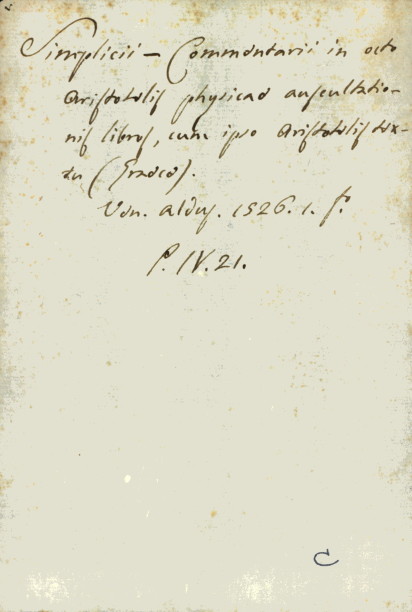 Simplicii – Commentarii in octo
Aristotelis physicae auscultatio-
nis libros, cum ipso Aristotelis tex-
tu (Graece).
Ven. Aldus. 1526. 1. f.
P. IV. 21.
C